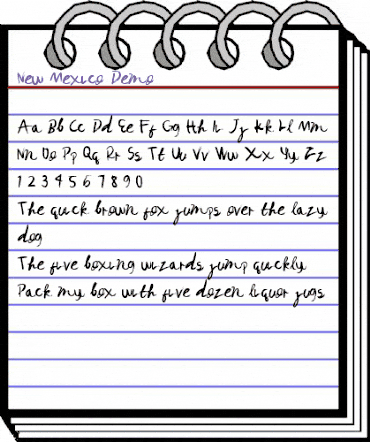 New Mexico Demo
Aa Bb Cc Dd Ee Ff Gg Hh Ii Jj Kk Ll Mm
Nn Oo Pp Qq Rr Ss Tt Uu Vv Ww Xx Yy Zz
1 2 3 4 5 6 7 8 9 0
The quick brown fox jumps over the lazy
dog
The five boxing wizards jump quickly
Pack my box with five dozen liquor jugs